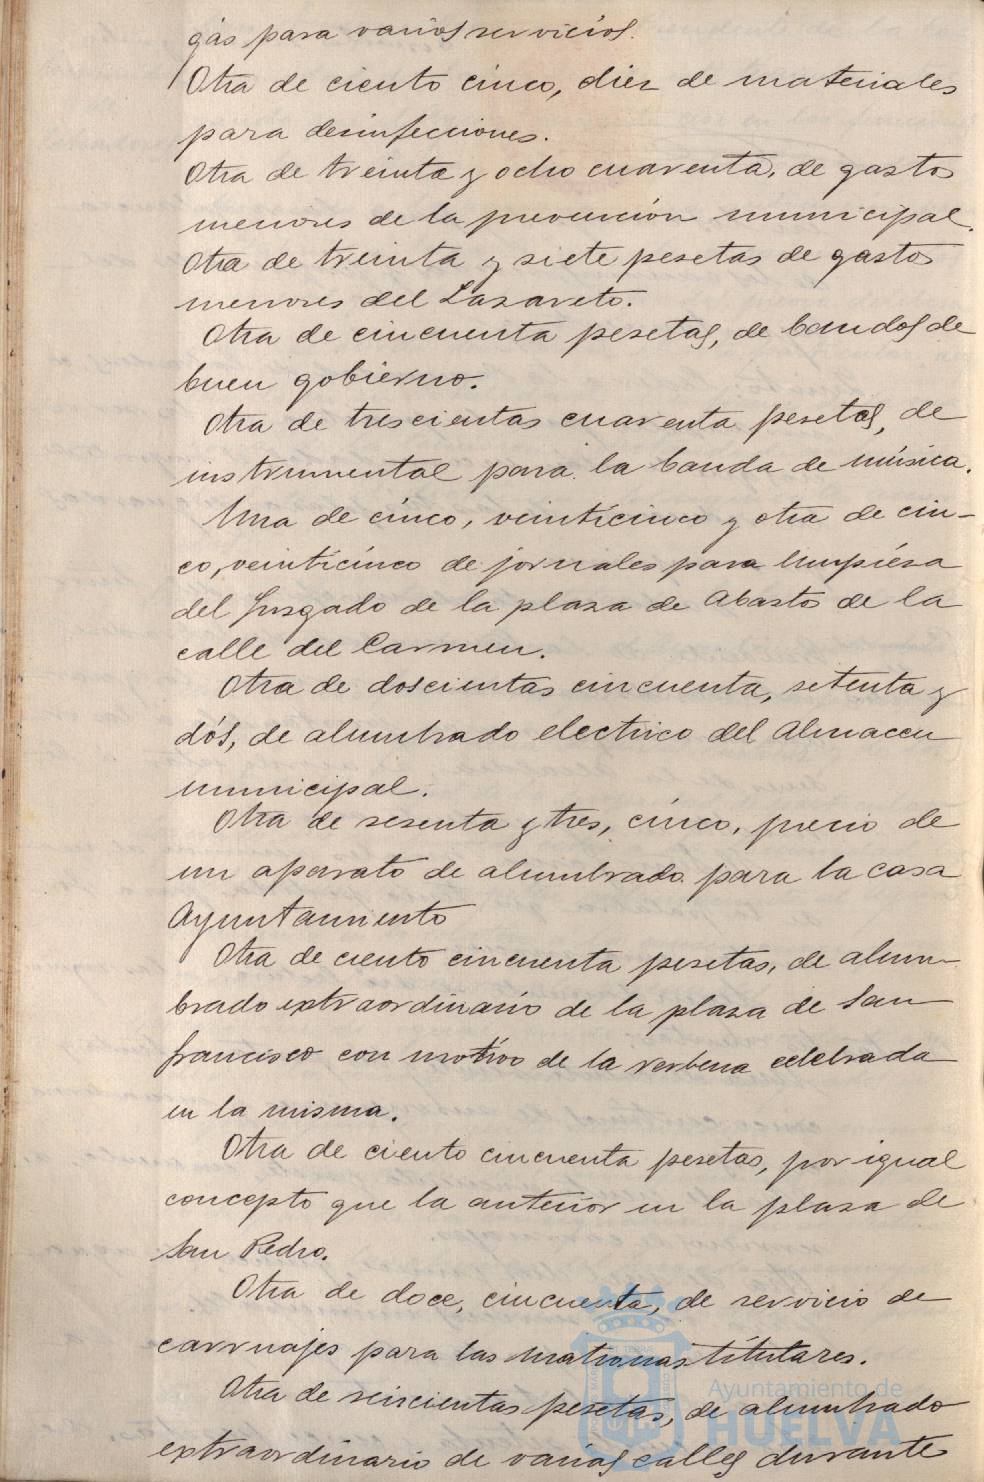 gás para varios servicios.
Otra de ciento cinco, diez de materiales
para desinfecciones.
Otra de treinta y ocho cuarenta, de gastos
menores de la prevención municipal.
Otra de treinta y siete pesetas de gastos
menores del Lazareto.
Otra de cincuenta pesetas, de bandos de
buen gobierno.
Otra de trescientas cuarenta pesetas, de
instrumental para la banda de música.
Una de cinco, veinticinco y otra de cin-
co, veinticinco de jornales para limpiesa
del Jusgado de la plasa de Abastos de la
calle del Carmen.
Otra de doscientas cincuenta, setenta y
dós, de alumbrado electrico del Almacen
municipal.
Otra de sesenta y tres, cinco, precio de
un aparato de alumbrado para la casa
Ayuntamiento
Otra de ciento cincuenta pesetas, de alum-
brado extraordinario de la plasa de San
Francisco con motivo de la verbena celebrada
en la misma.
Otra de ciento cincuenta pesetas, por igual
concepto que la anterior en la plasa de
San Pedro.
Otra de doce, cincuenta, de servicio de
carruajes para las matronas titulares.
Otra de seiscientas pesetas, de alumbrado
extraordinario de varias calles durante
Ayuntamiento de
HUELVA